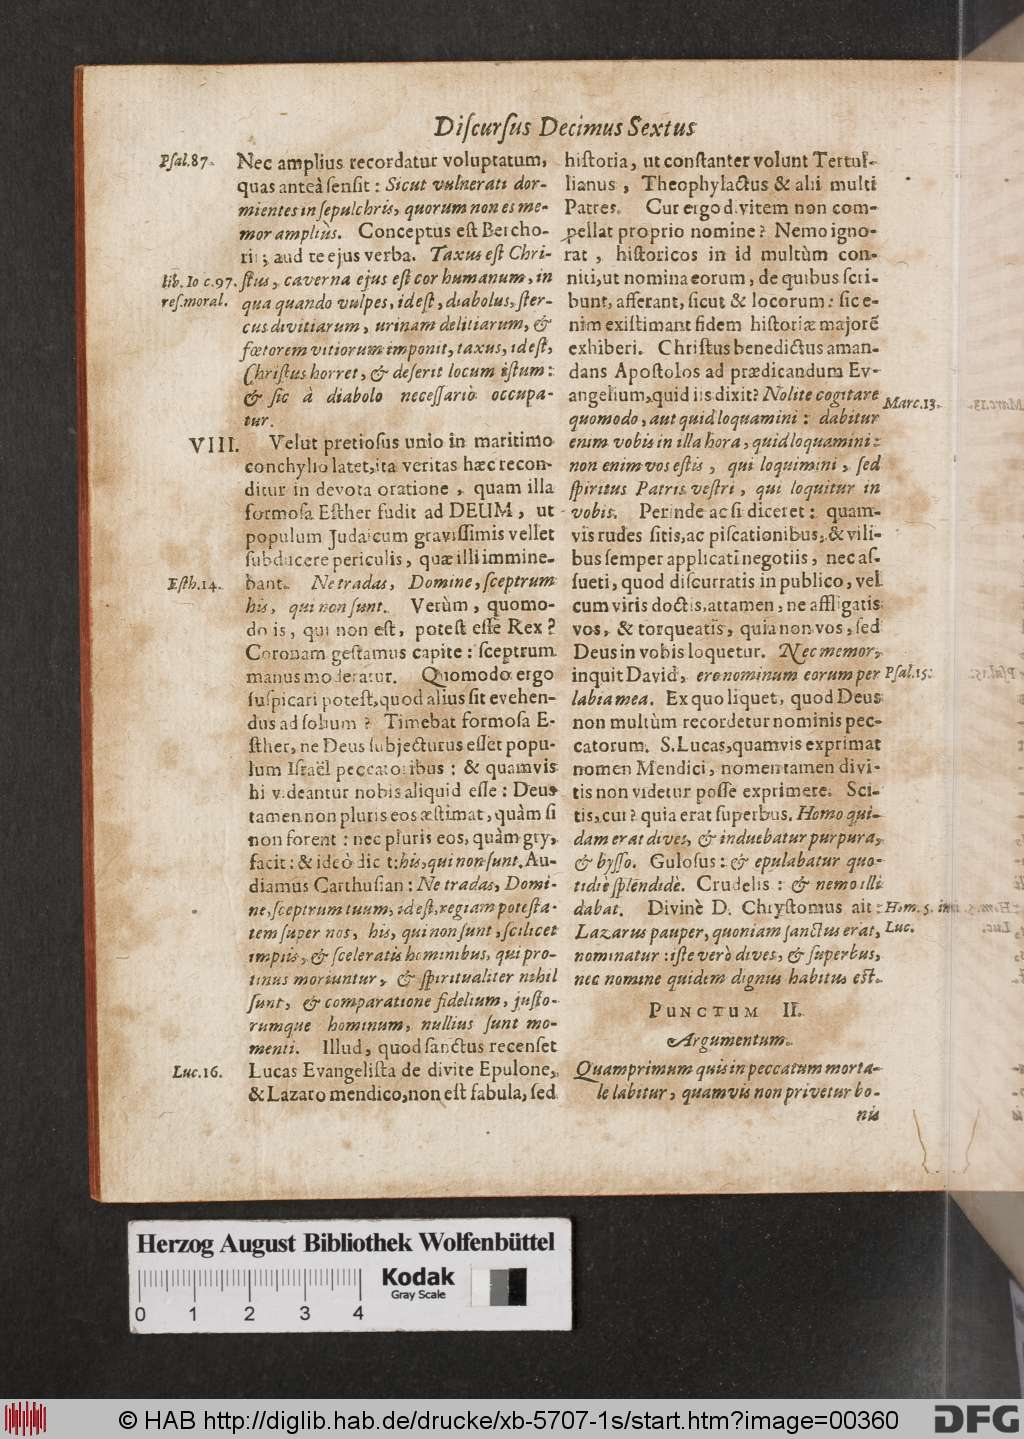 Diſcurſus Decimus Sextus
Pſal.87.
Nec amplius recordatur voluptatum,
quas anteà ſenſit: Sicut vulnerati dor-
mientes in ſepulchris, quorum non es me-
mor ampliùs. Conceptus eſt Bercho-
rii; audite ejus verba. Taxus eſt Chri-
lib. 10 c.97.
ſtus, caverna ejus eſt cor humanum, in
reſ.moral.
qua quando vulpes, id eſt, diabolus, ſter-
cus divitiarum, urinam delitiarum, &
fœtorem vitiorum imponit, taxus, id eſt,
Chriſtus horret, & deſerit locum iſtum:
& ſic à diabolo neceſſariò occupa-
tur.
VIII.
Velut pretioſus unio in maritimo
conchylio latet, ita veritas hæc recon-
ditur in devota oratione, quam illa
formoſa Eſther fudit ad DEUM, ut
populum Judaicum graviſſimis vellet
ſubducere periculis, quæ illi immine-
Eſth.14.
bant. Ne tradas, Domine, ſceptrum
his, qui non ſunt. Verùm, quomo-
do is, qui non eſt, poteſt eſſe Rex?
Coronam geſtamus capite: ſceptrum
manus moderatur. Quomodo ergo
ſuſpicari poteſt, quod alius ſit evehen-
dus ad ſolium? Timebat formoſa E-
ſther, ne Deus ſubjecturus eſſet popu-
lum Iſraël peccatoribus: & quamvis
hi videantur nobis aliquid eſſe: Deus
tamen non pluris eos æſtimat, quàm ſi
non forent: nec pluris eos, quàm gry,
facit: & ideò dicit: his, qui non ſunt. Au-
diamus Carthuſian: Ne tradas, Domi-
ne, ſceptrum tuum, id eſt, regiam poteſta-
tem ſuper nos, his, qui non ſunt, ſcilicet
impiis, & ſceleratis hominibus, qui pro-
tinus moriuntur, & ſpiritualiter nihil
ſunt, & comparatione fidelium, juſto-
rumque hominum, nullius ſunt mo-
menti. Illud, quod ſanctus recenſet
Luc.16.
Lucas Evangeliſta de divite Epulone,
& Lazaro mendico, non eſt fabula, ſed
hiſtoria, ut conſtanter volunt Tertul-
lianus, Theophylactus & alii multi
Patres. Cur ergo divitem non com-
pellat proprio nomine? Nemo igno-
rat, hiſtoricos in id multùm con-
niti, ut nomina eorum, de quibus ſcri-
bunt, afferant, ſicut & locorum: ſic e-
nim exiſtimant fidem hiſtoriæ majorē
exhiberi. Chriſtus benedictus aman-
dans Apoſtolos ad prædicandum Ev-
angelium, quid iis dixit? Nolite cogitare
Marc.13.
quomodo, aut quid loquamini: dabitur
enim vobis in illa hora, quid loquamini:
non enim vos eſtis, qui loquimini, ſed
ſpiritus Patris veſtri, qui loquitur in
vobis. Perinde ac ſi diceret: quam-
vis rudes ſitis, ac piſcationibus, & vili-
bus ſemper applicati negotiis, nec aſ-
ſueti, quod diſcurratis in publico, vel
cum viris doctis, attamen, ne affligatis
vos, & torqueatis, quia non vos, ſed
Deus in vobis loquetur. Nec memor,
inquit David, ero nominum eorum per
Pſal.15:
labia mea. Ex quo liquet, quod Deus
non multùm recordetur nominis pec-
catorum. S. Lucas, quamvis exprimat
nomen Mendici, nomen tamen divi-
tis non videtur poſſe exprimere. Sci-
tis, cur? quia erat ſuperbus. Homo qui-
dam erat dives, & induebatur purpura,
& byſſo. Guloſus: & epulabatur quo-
tidie ſplendidè. Crudelis: & nemo illi
dabat. Divinè D. Chryſtomus ait:
Hom. 5. in
Lazarus pauper, quoniam ſanctus erat,
Luc.
nominatur: iſte verò dives, & ſuperbus,
nec nomine quidem dignus habitus eſt.
PUNCTUM II.
Argumentum.
Quamprimum quis in peccatum morta-
le labitur, quamvis non privetur bo-
nis
Herzog August Bibliothek Wolfenbüttel
Kodak
Gray Scale
0 1 2 3 4
© HAB http://diglib.hab.de/drucke/xb-5707-1s/start.htm?image=00360
DFG